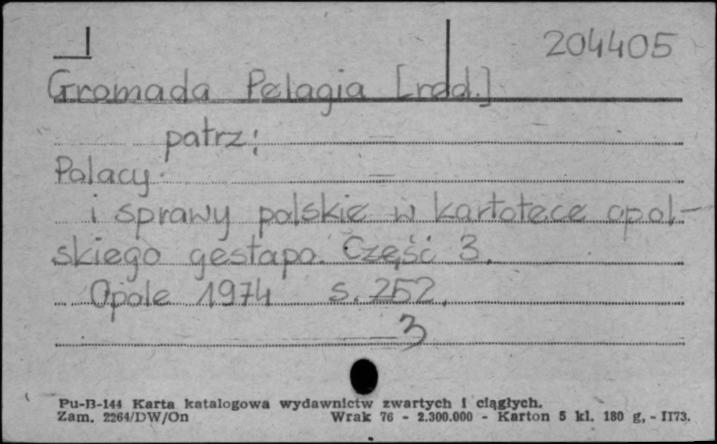 204405
Gromada Pelagia [red.]
patrz:
Polacy
i sprawy polskie w kartotece opol-
skiego gestapo. Część 3.
Opole 1974 s. 252.
3
Pu-B-144 Karta katalogowa wydawnictw zwartych i ciągłych.
Zam. 2264/DW/On Wrak 76 - 2.300.000 - Karton 5 kl. 180 g, - II73.